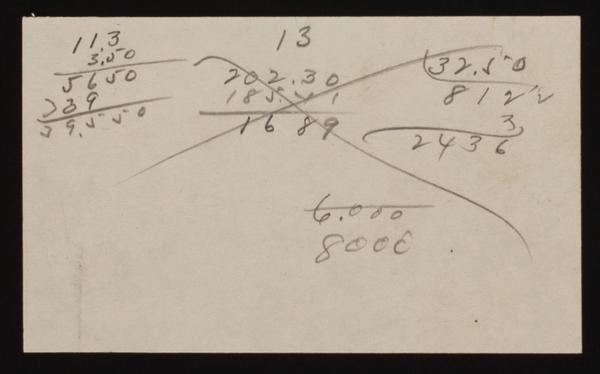 11.3
3.50
5650
339
39.550
13
202.30
185.41
1689
32.50
812½
3
2436
6.000
8000